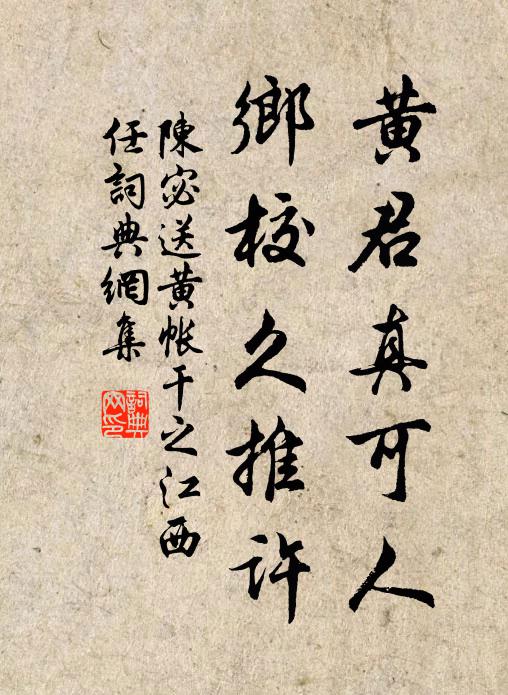 黄君真可人
鄉校久推許
陳宓送黄帳干之江西
任詞典網集
詞典
网印